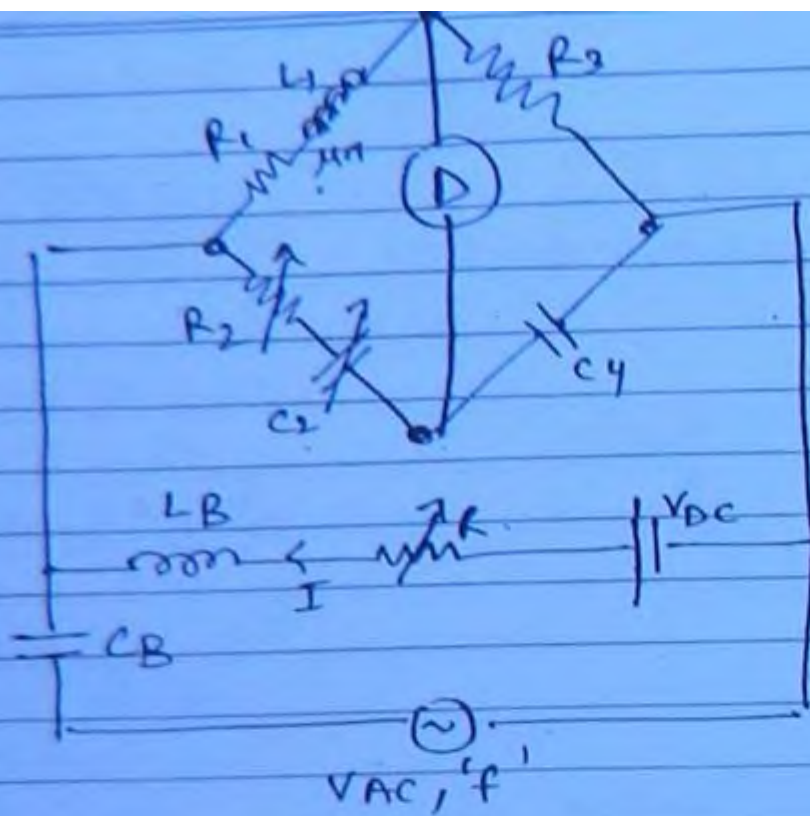 L1
R3
R1
D
R2
C2
C4
LB
R
VDC
I
CB
~
VAC, 'f'